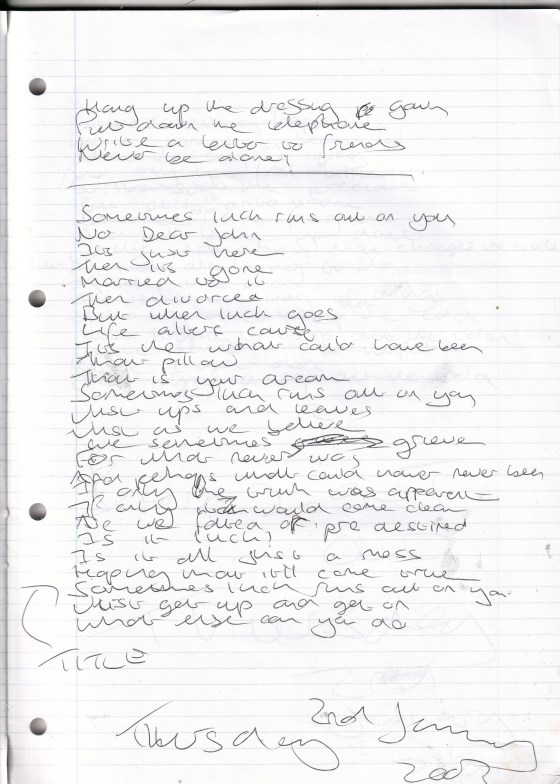 Hang up the dressing gown
Put down the telephone
Write a letter to friends
Never be alone!
Sometimes luck runs out on you
No Dear John
Its just here
Then its gone
Married to it
Then divorced
But when luck goes
Life alters course
Its the what could have been
That pillow
That is your dream
Sometimes luck runs out on you
Just ups and leaves
Just as we believe
We sometimes grieve
For what never was
And perhaps what could never never been
If only the truth was apparent
If only would come clean
Are we fated or pre destined
Is it luck?
Is it all just a mess
Hoping that it'll come true
Sometimes luck runs out on you
Just get up and get on
What else can you do
TITLE
Thursday 2nd January
2003